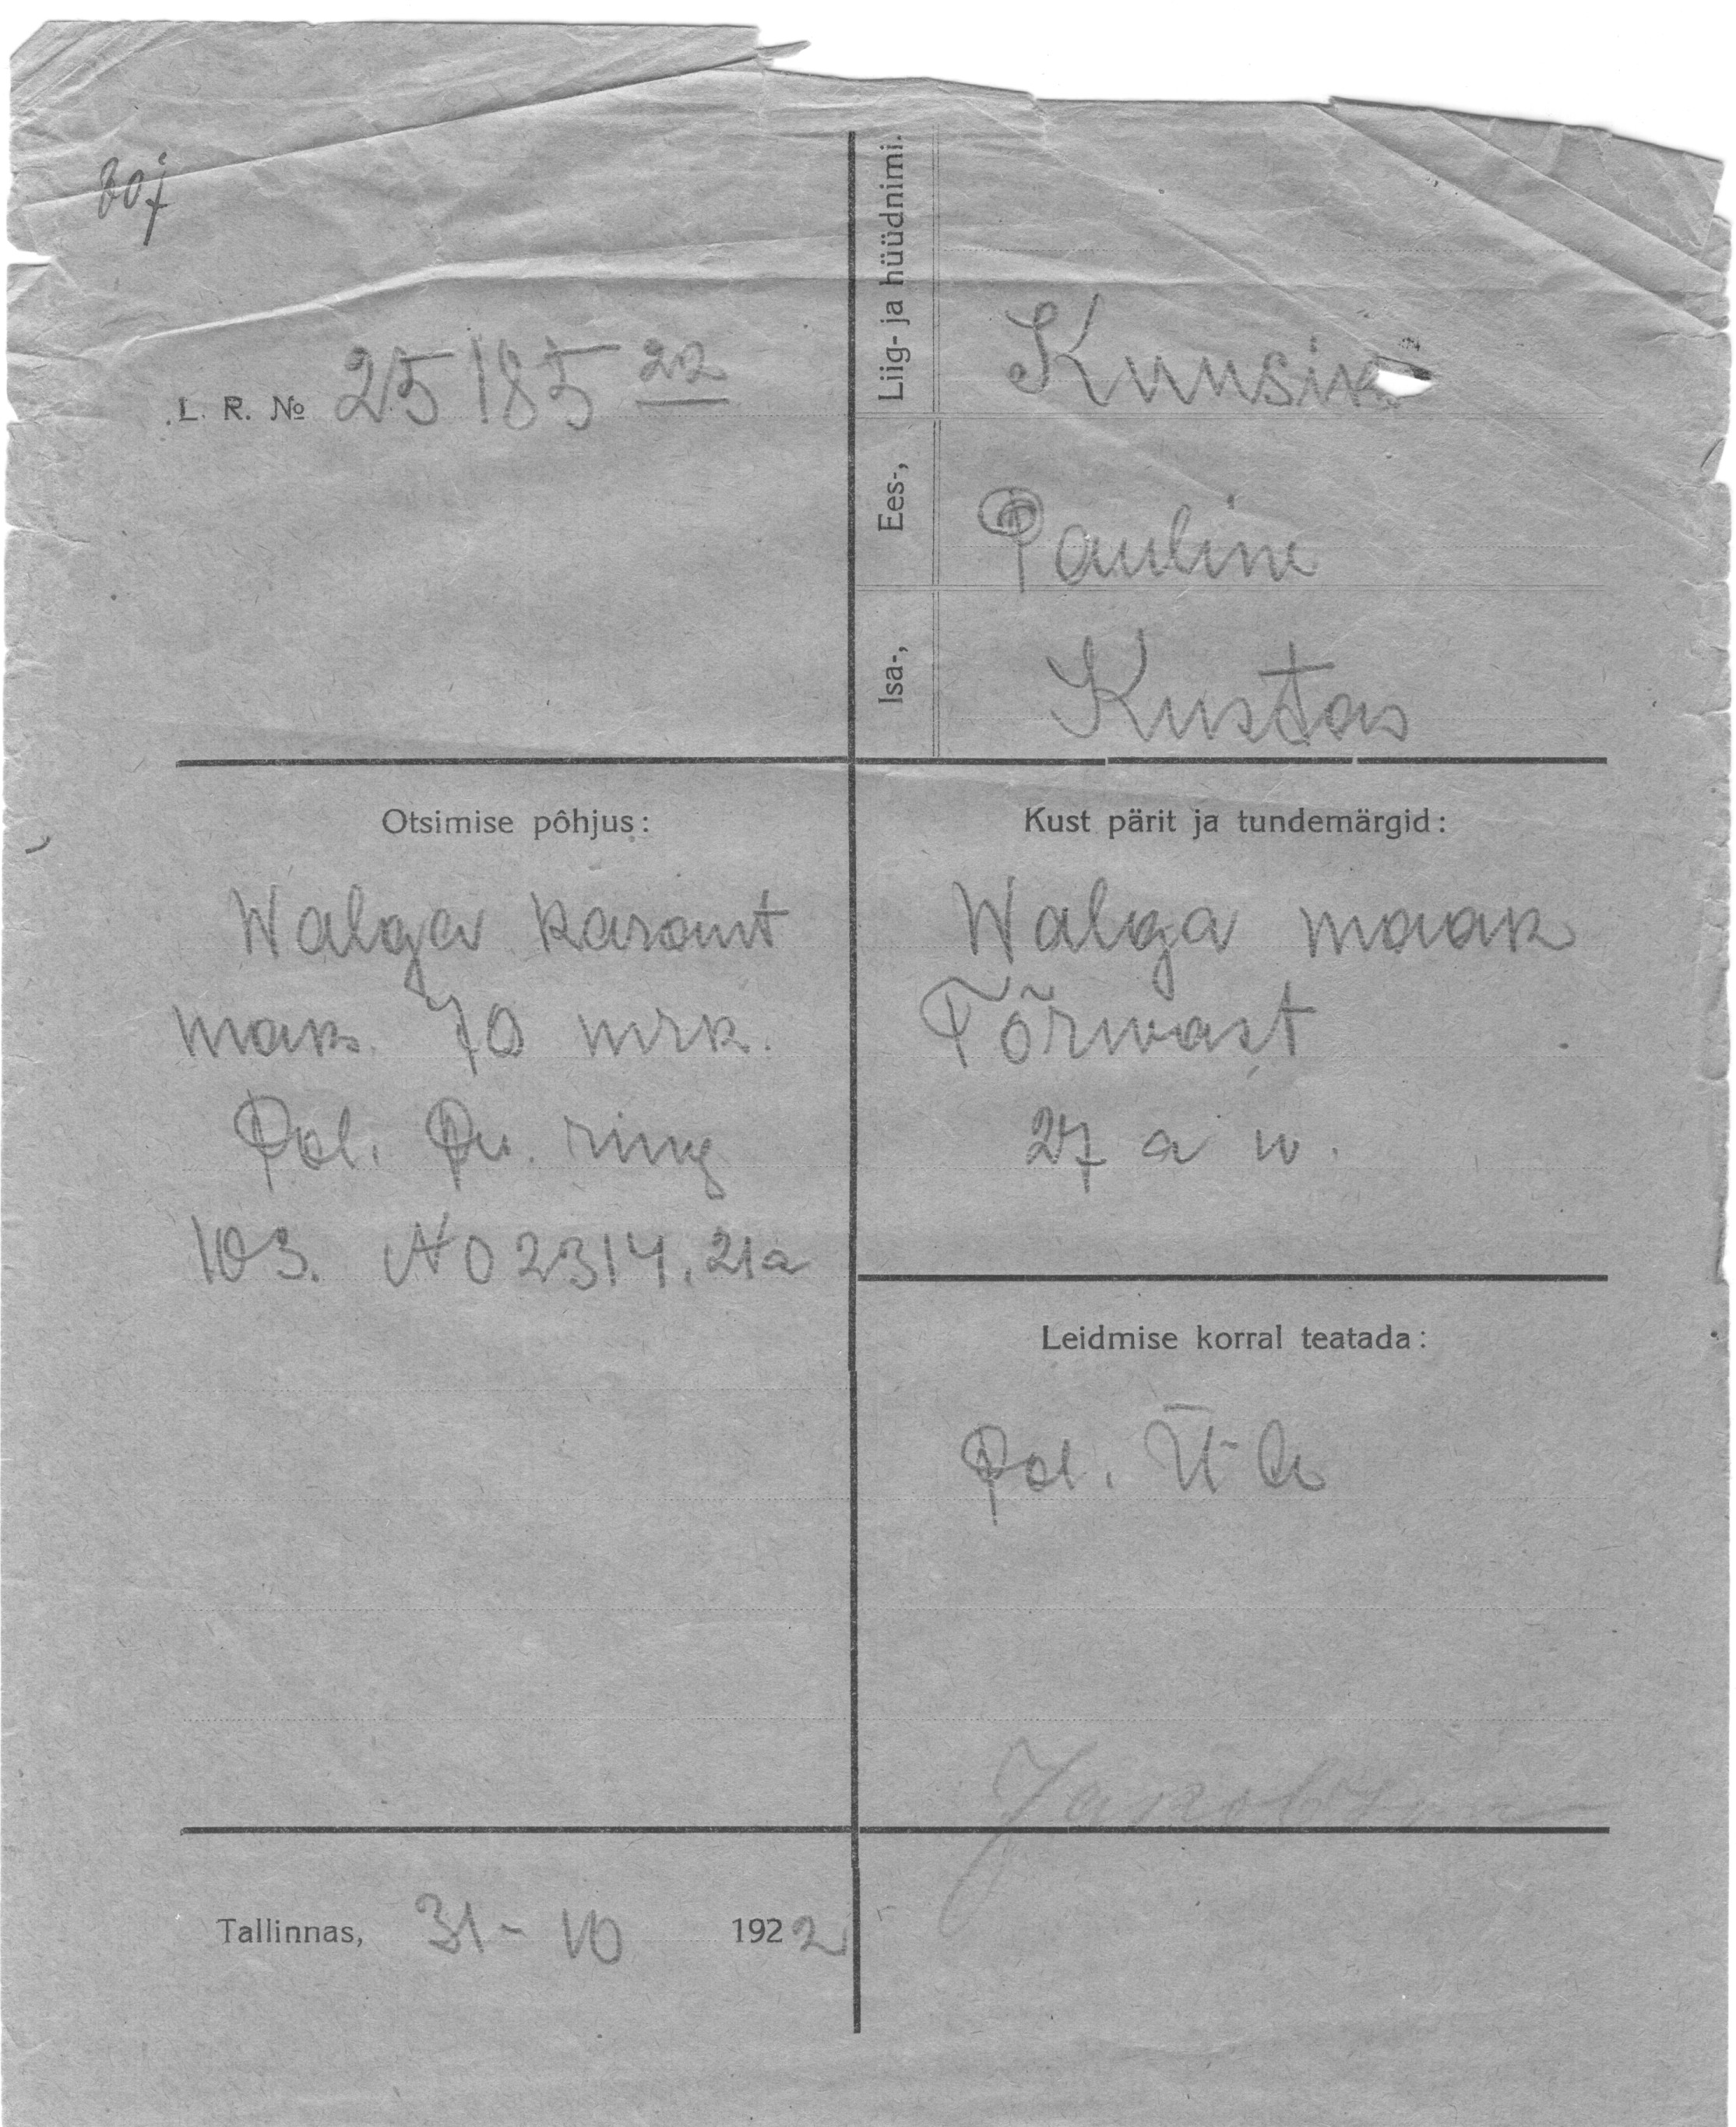 807
L. R. № 25185 22
Liig- ja hüüdnimi.
Kuusik
Ees-,
Pauline
Isa-,
Kustas
Otsimise põhjus:
Walga karant
maks. 70 mrk.
Pol. Pv. ring
103. No 2314. 21a
Kust pärit ja tundemärgid:
Walga maak
Tõrwast
27 a w.
Leidmise korral teatada:
Pol. Ü-le
Tallinnas, 31-10 1922